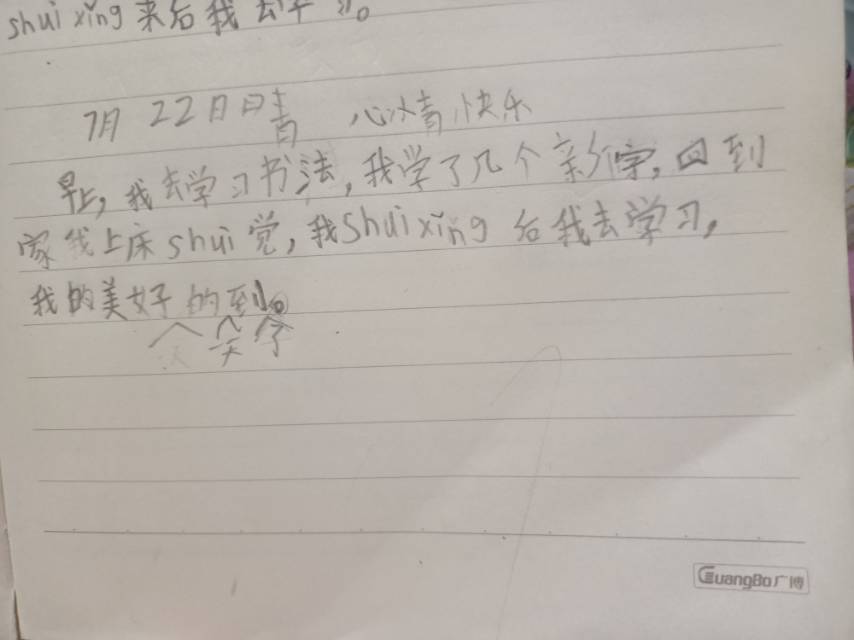 shuixǐng来后我去
7月22日日青 心情快乐
早上,我去学习书法,我学了几个新字,回到
家我上床shuì觉,我shuìxǐng后我去学习,
我的美好的到。
GuangBo广博